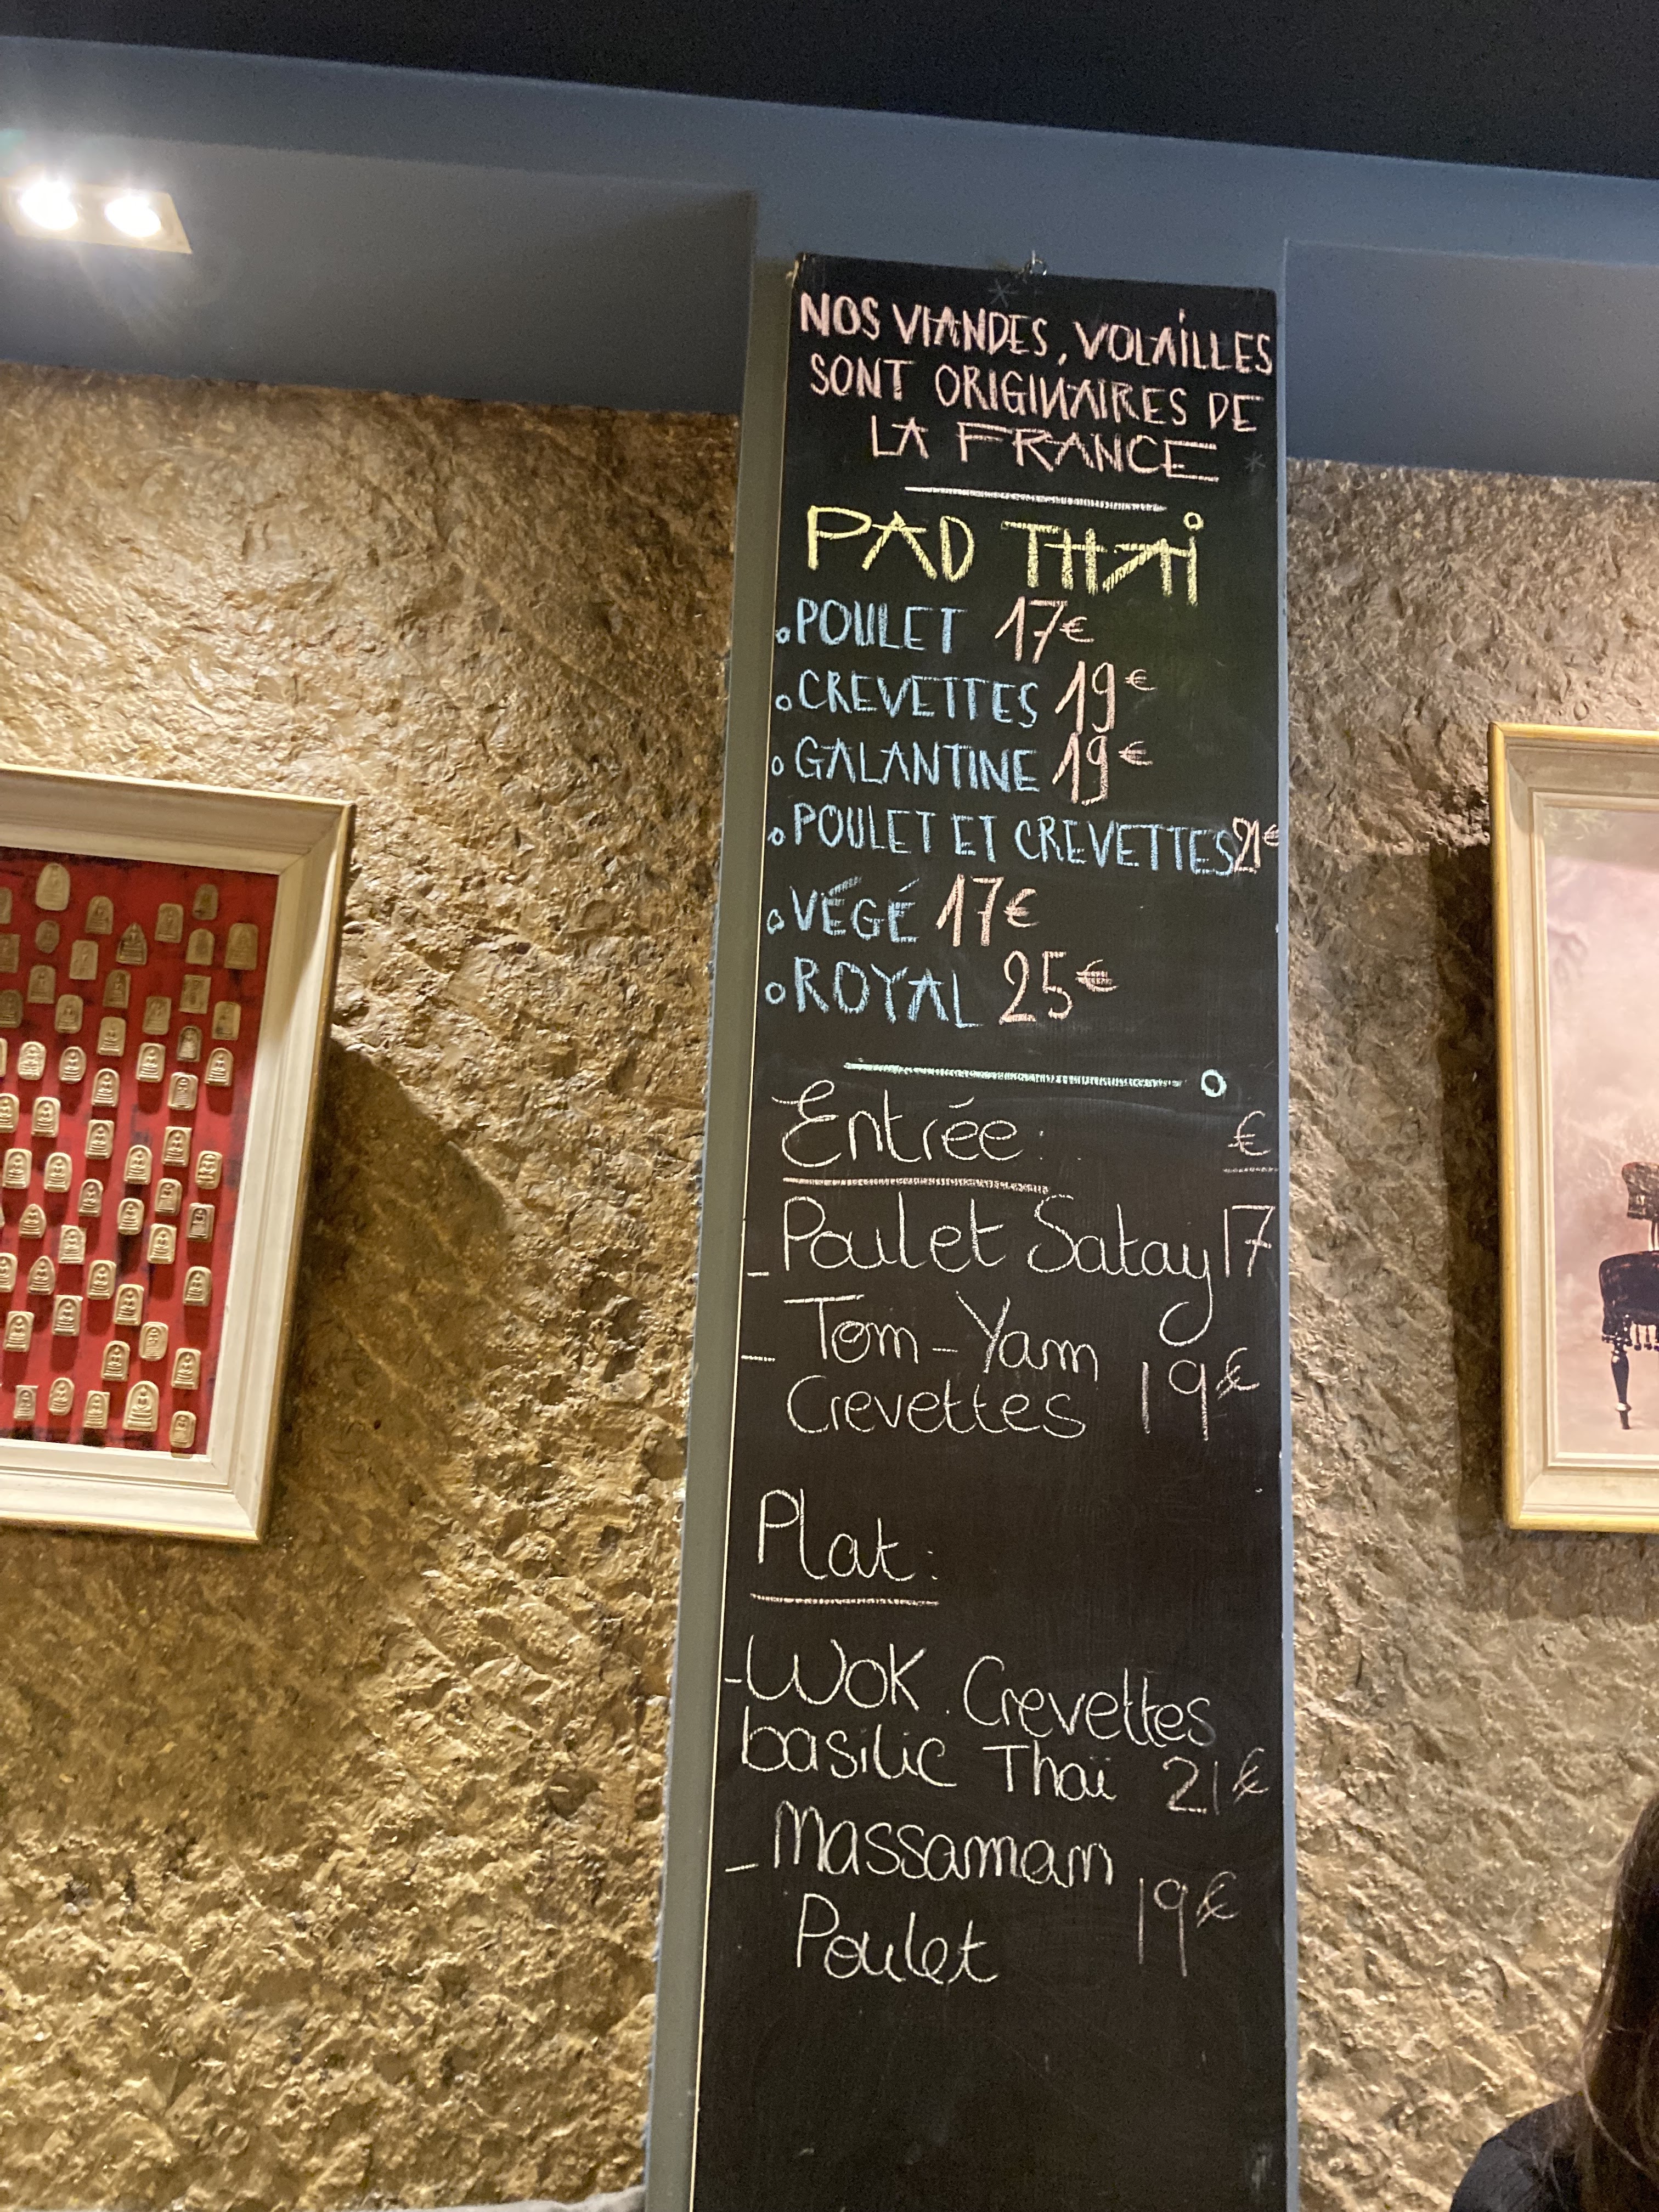 NOS VIANDES, VOLAILLES
SONT ORIGINAIRES DE
LA FRANCE
PAD THAI
POULET 17€
CREVETTES 19€
GALANTINE 19€
POULET ET CREVETTES 21€
VÉGÉ 17€
ROYAL 25€
Entrée: €
- Poulet Satay 17
- Tom-Yam
Crevettes 19€
Plat:
- Wok Crevettes
basilic Thaï 21€
- Massamam
Poulet 19€